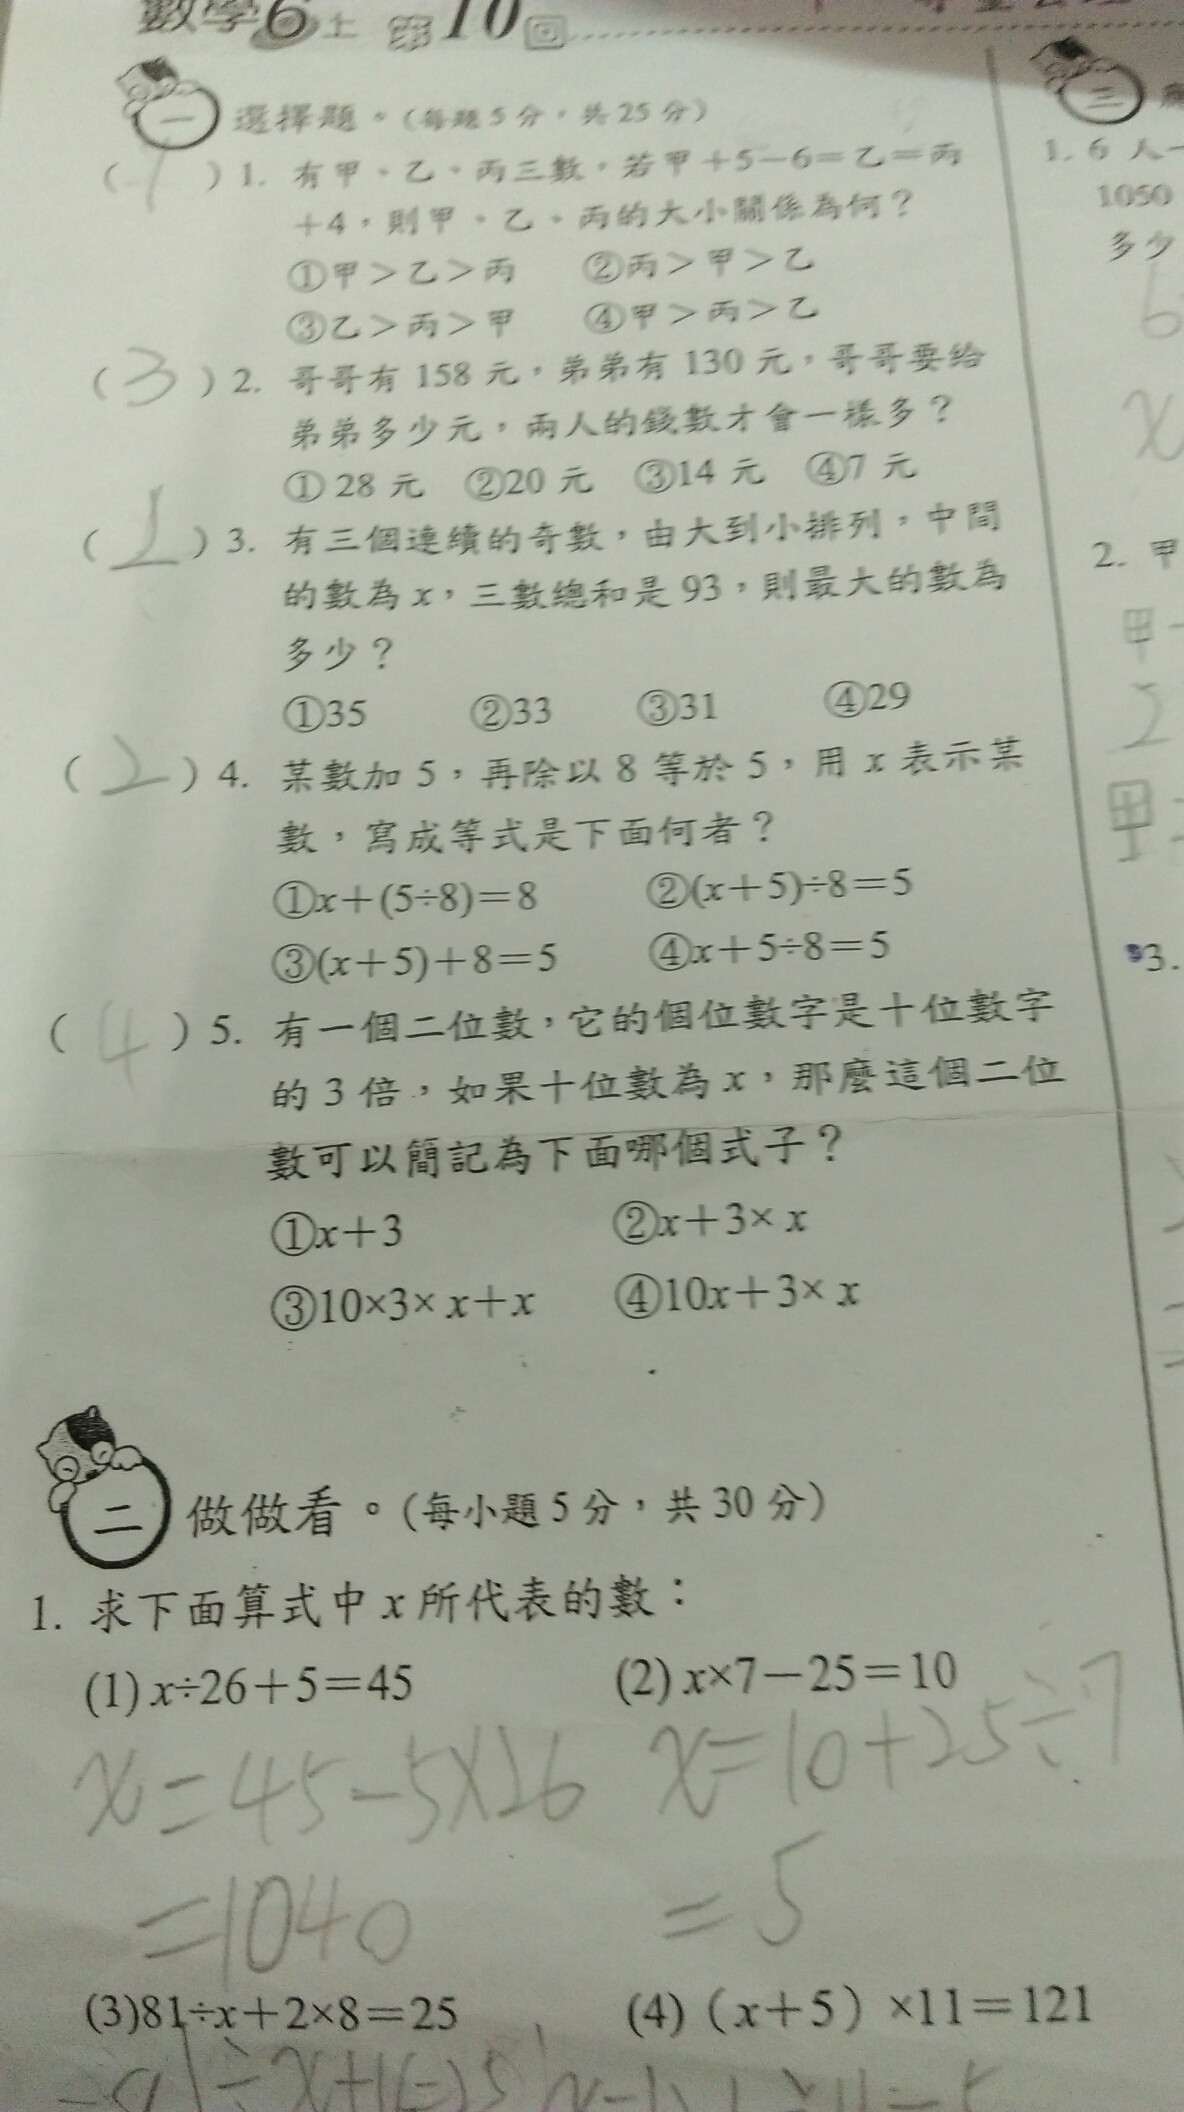 數學6上 第10回
一 選擇題。(每題5分,共25分)
(1)1. 有甲、乙、丙三數,若甲+5-6=乙=丙
+4,則甲、乙、丙的大小關係為何?
①甲>乙>丙 ②丙>甲>乙
③乙>丙>甲 ④甲>丙>乙
(3)2. 哥哥有158元,弟弟有130元,哥哥要給
弟弟多少元,兩人的錢數才會一樣多?
①28元 ②20元 ③14元 ④7元
(1)3. 有三個連續的奇數,由大到小排列,中間
的數為x,三數總和是93,則最大的數為
多少?
①35 ②33 ③31 ④29
(2)4. 某數加5,再除以8等於5,用x表示某
數,寫成等式是下面何者?
①x+(5÷8)=8 ②(x+5)÷8=5
③(x+5)+8=5 ④x+5÷8=5
(4)5. 有一個二位數,它的個位數字是十位數字
的3倍,如果十位數為x,那麼這個二位
數可以簡記為下面哪個式子?
①x+3 ②x+3×x
③10×3×x+x ④10x+3×x
二 做做看。(每小題5分,共30分)
1. 求下面算式中x所代表的數:
(1) x÷26+5=45 (2) x×7-25=10
x=45-5×26 x=10+25÷7
=1040 =5
(3)81÷x+2×8=25 (4)(x+5)×11=121
三
1. 6人
1050
多少
6
x
2. 甲
甲
甲
3.